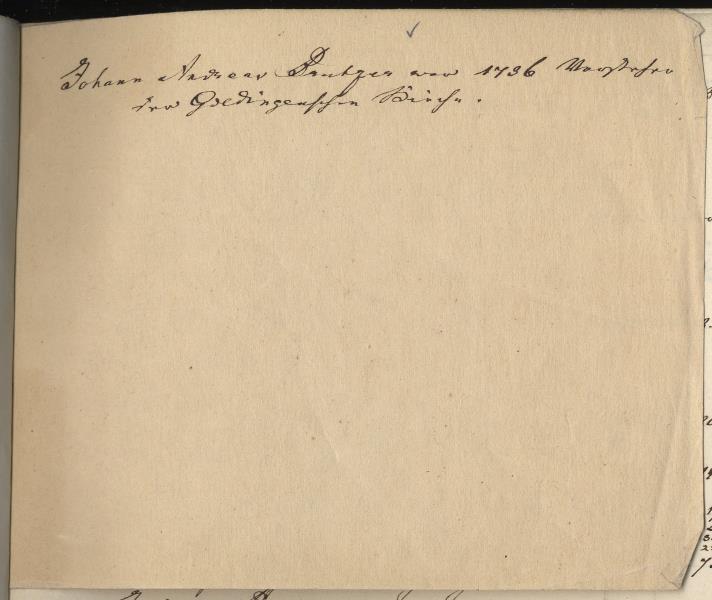 Johann Andreas war 1736 Vorsteher
der Goldingenschen Kirche.